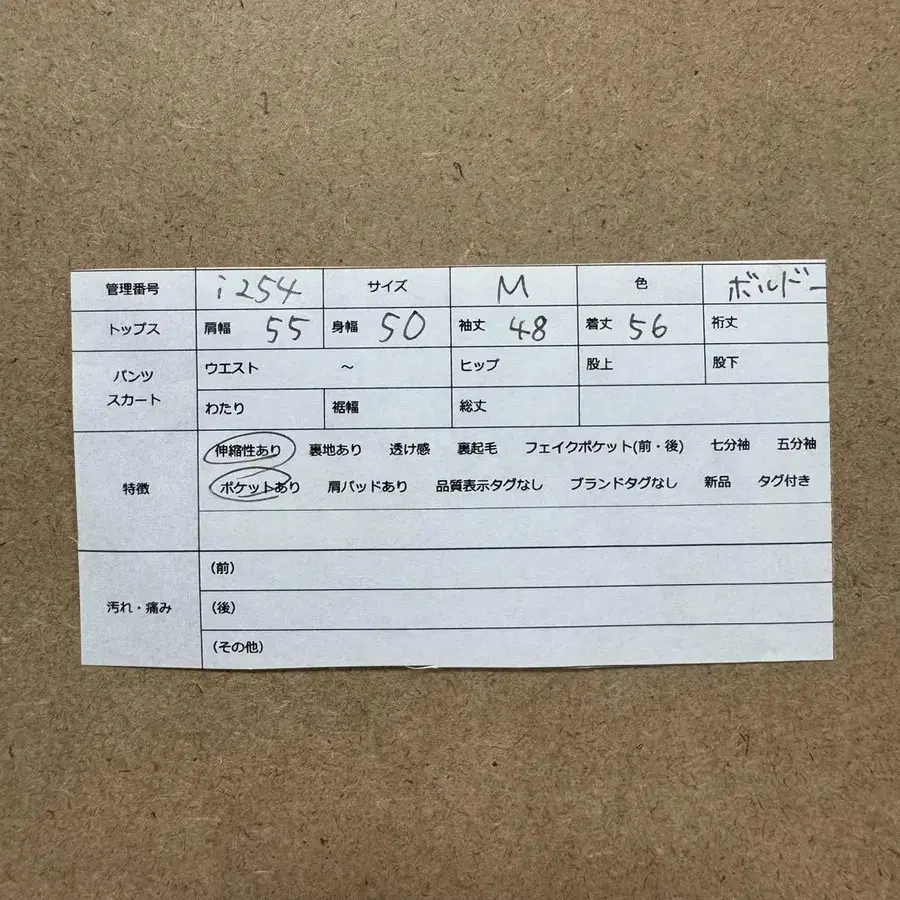 管理番号 i254 サイズ M 色 ボルドー
トップス 肩幅 55 身幅 50 袖丈 48 着丈 56 裄丈
パンツ スカート ウエスト ～ ヒップ 股上 股下
わたり 裾幅 総丈
特徴 伸縮性あり 裏地あり 透け感 裏起毛 フェイクポケット(前・後) 七分袖 五分袖
ポケットあり 肩パッドあり 品質表示タグなし ブランドタグなし 新品 タグ付き
汚れ・痛み (前)
(後)
(その他)